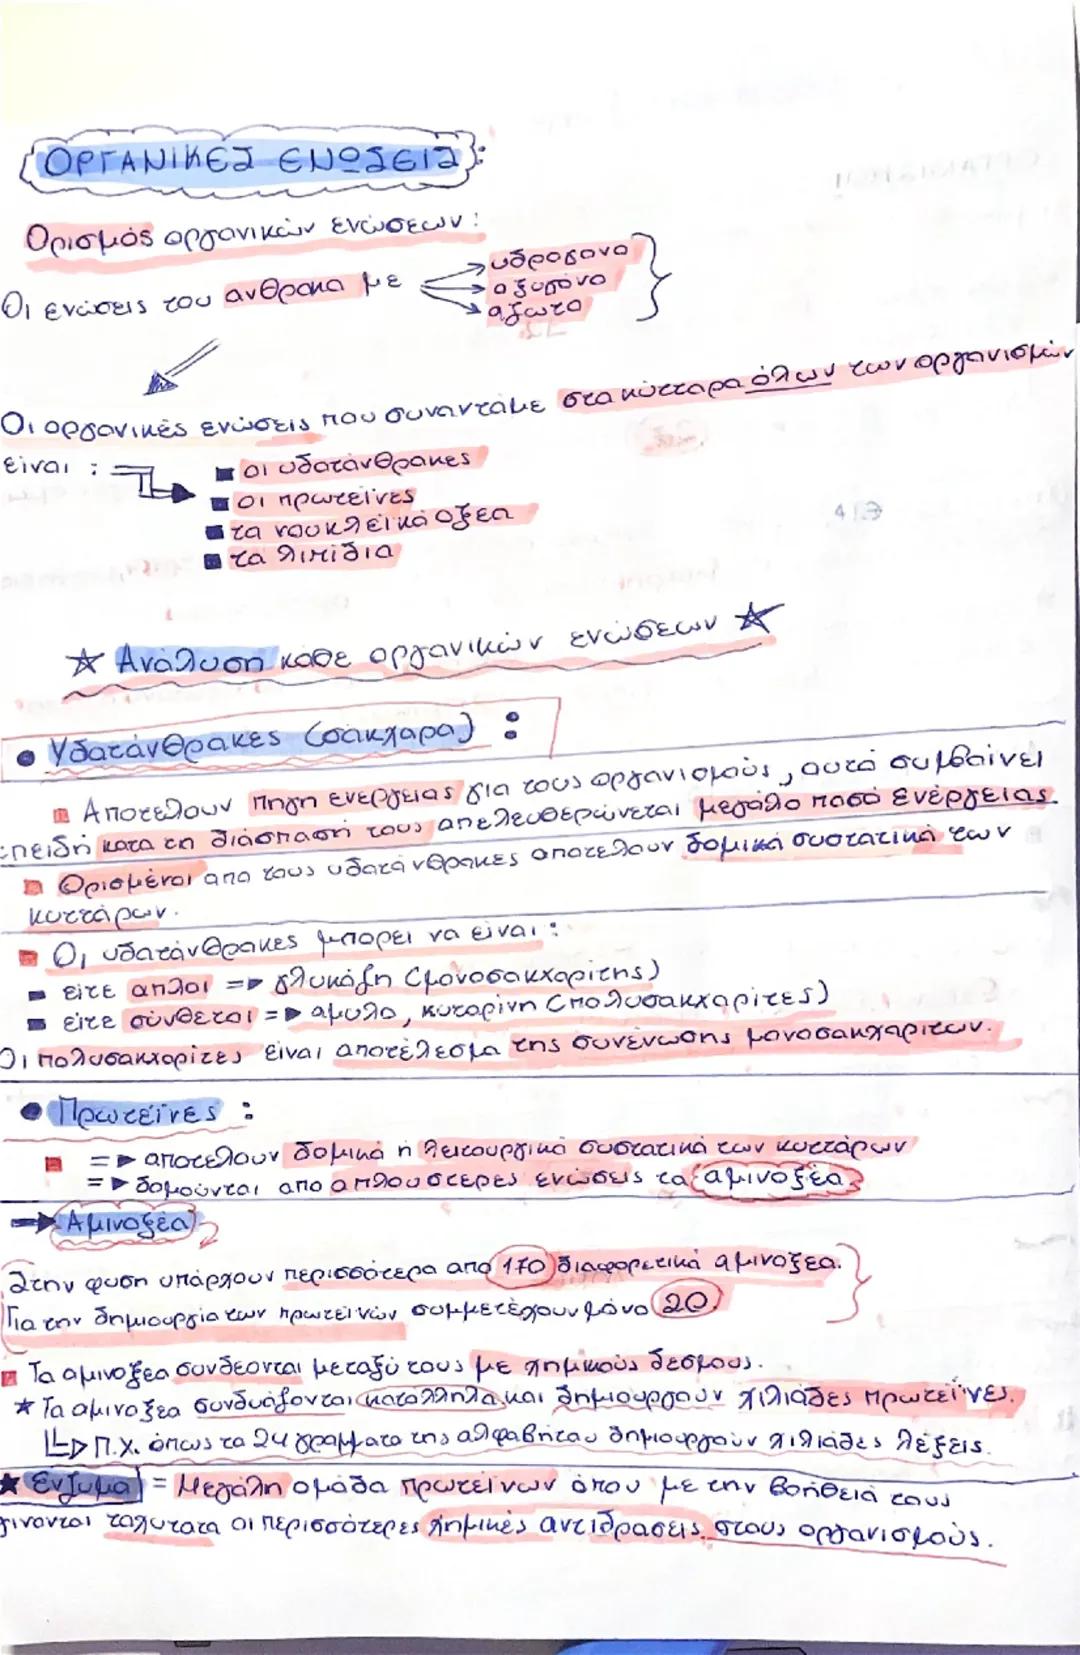 ΟΡΓΑΝΙΚΕΣ ΕΝΩΣΕΙΣ:
Ορισμός οργανικών ενώσεων:
Οι ενώσεις του ανθρακα με
υδρογονο
οξυγόνο
αζωτο
Οι οργανικές ενώσεις που συναντάμε στα κύτταρα όλων των οργανισμών
είναι :
οι υδατάνθρακες
οι πρωτείνες
τα νουκλεϊκά οξέα
τα λιπίδια
Ανάλυση κάθε οργανικών ενώσεων
Υδατάνθρακες (σακχαρα) :
Αποτελουν πηγη ενεργειας για τους οργανισμούς, αυτό συμβαίνει
επειδή κατα τη διάσπαση τους απελευθερώνεται μεγάλο ποσό ενέργειας.
Ορισμένοι απο τους υδατάνθρακες αποτελουν δομικά συστατικά των
κυττάρων.
Οι υδατάνθρακες μπορει να ειναι :
είτε απλοι => γλυκόζη (μονοσακχαρίτης)
είτε σύνθετοι => αμυλο, κυταρίνη (πολυσακχαρίτες)
Οι πολυσακχαρίτες είναι αποτέλεσμα της συνένωσης μονοσακχαριτων.
Πρωτεΐνες :
=> αποτελουν δομικά ή λειτουργικά συστατικά των κυττάρων
=> δομούνται απο απλουστερες ενώσεις τα αμινοξέα
Αμινοξέα
Στην φυση υπάρχουν περισσότερα απο 170 διαφορετικά αμινοξεα.
Για την δημιουργία των πρωτεϊνών συμμετέχουν μόνο 20.
Τα αμινοξεα συνδεονται μεταξύ τους με χημικούς δεσμους.
Τα αμινοξεα συνδυάζονται κατάλληλα και δημιουργούν χιλιάδες πρωτεΐνες.
Π.Χ. όπως τα 24 γραμματα της αλφαβήτου δημιουργούν χιλιάδες λέξεις.
Ενζυμα = Μεγάλη ομάδα πρωτεϊνων όπου με την βοήθειά τους
γινονται ταχυτατα οι περισσότερες χημικές αντιδρασεις στους οργανισμούς.